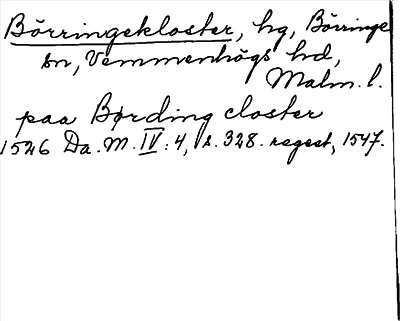 Börringekloster, hg, Börringe
sn, Vemmenhögs hd,
Malm. l.
paa Børding closter
1526 Da. M. IV: 4, s. 328. regest, 1547.